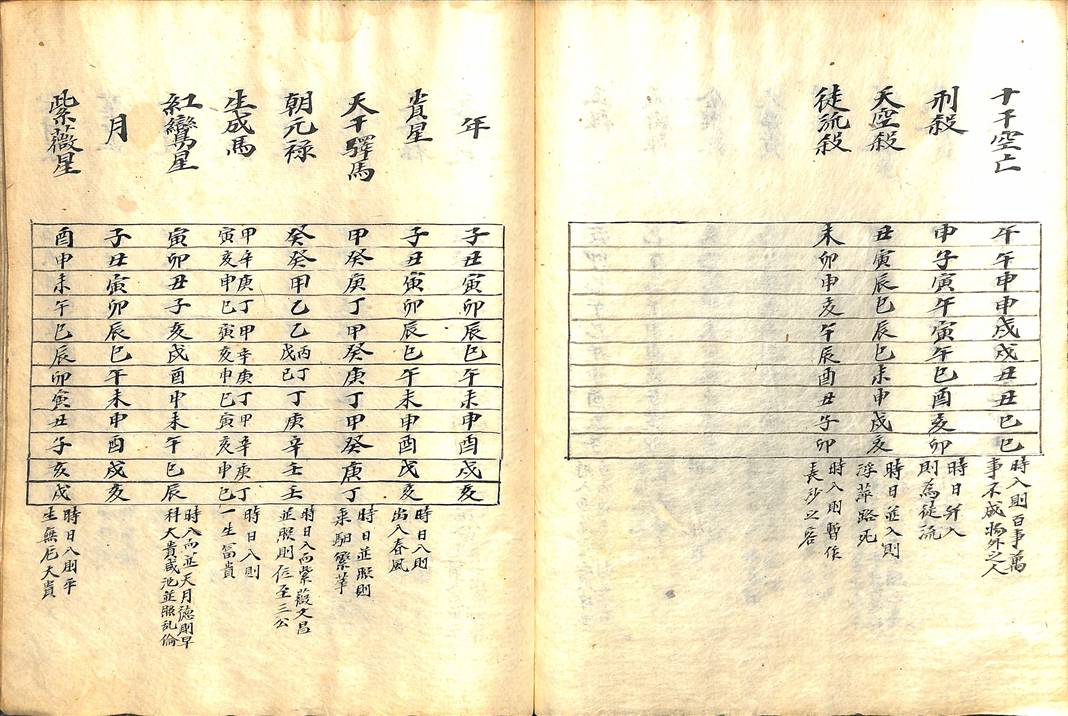 十干空亡
午午申申戌戌丑丑巳巳
時入則百事萬
事不成物外之人
刑殺
申子寅午寅午巳酉亥卯
時日并入
則為徒流
天空殺
丑寅辰巳辰巳未申戌亥
時日並入則
浮萍路死
徒流殺
未卯申亥午辰酉丑子卯
時入則暫作
長沙之客
年
子丑寅卯辰巳午未申酉戌亥
貴星
子丑寅卯辰巳午未申酉戌亥
時日入則
出入春風
天干驛馬
甲癸庚丁甲癸庚丁甲癸庚丁
時日並照則
乘駟繁華
朝元祿
癸癸甲乙乙丙戊丁己丁庚辛壬壬
時日入而紫薇文昌
並照則位至三公
生成馬
甲寅辛亥庚申丁巳甲寅辛亥庚申丁巳甲寅辛亥庚申丁巳
時日入則
一生富貴
紅鸞星
寅卯丑子亥戌酉申未午巳辰
時入而並天月德則早
科大貴咸池並照乱倫
月
子丑寅卯辰巳午未申酉戌亥
紫薇星
酉申未午巳辰卯寅丑子亥戌
時日入則平
生無厄大貴